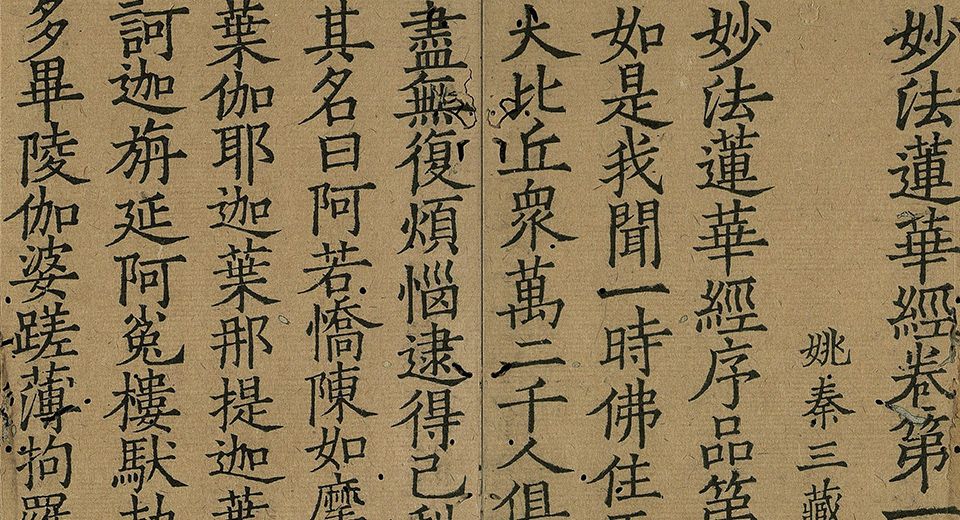 妙法蓮華經卷第一
姚秦三藏
妙法蓮華經序品第
如是我聞一時佛住
大比丘衆萬二千人俱
盡無復煩惱逮得己利
其名曰阿若憍陳如摩
葉伽耶迦葉那提迦葉
訶迦旃延阿㝹樓馱劫
多畢陵伽婆蹉薄拘羅